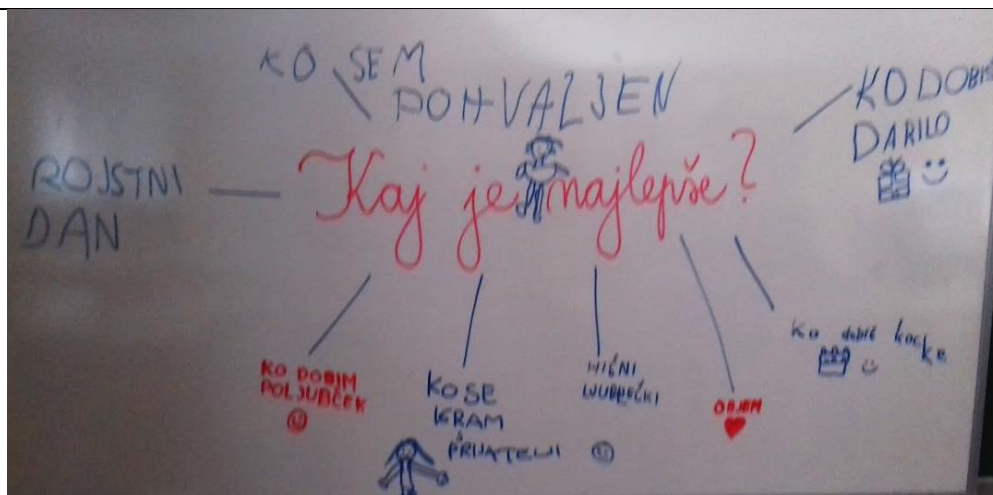 KO SEM
POHVALJEN
KO DOBIŠ
DARILO
ROJSTNI
DAN
Kaj je najlepše?
KO DOBIM
POLJUBČEK
KO SE
IGRAM
S
PRIJATELJI
HIŠNI
LJUBLJEČKI
OBJEM
KO dobiš kocke